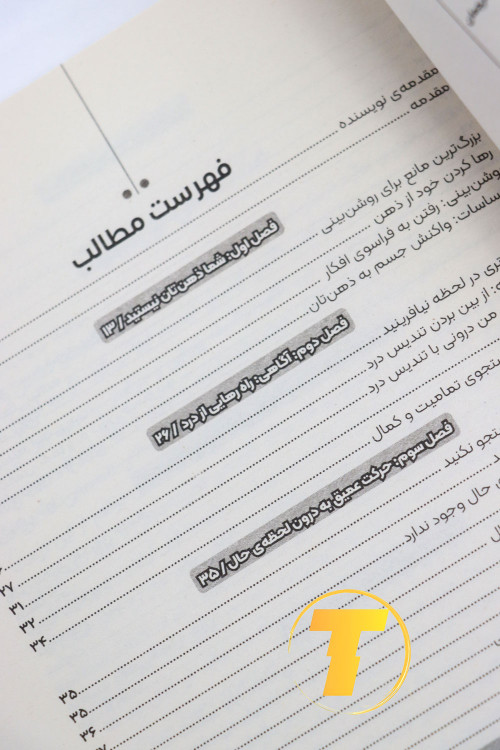 فهرست مطالب
مقدمه‌ی نویسنده
مقدمه
فصل اول: شما ذهن‌تان نیستید / ۱۳
بزرگ‌ترین مانع برای روشن‌بینی
رها کردن خود از ذهن
روشن‌بینی: رفتن به فراسوی افکار
واکنش جسم به ذهن‌تان
فصل دوم: آگاهی: راه رهایی از درد / ۲۶
در لحظه نیافرینید
از بین بردن تندیس درد ۲۷
من درونی با تندیس درد ۳۱
تمامیت و کمال ۳۲
۳۴
فصل سوم: حرکت عمیق به درون لحظه‌ی حال / ۳۵
نکنید ۳۵
۳۵
حال وجود ندارد ۳۶
T